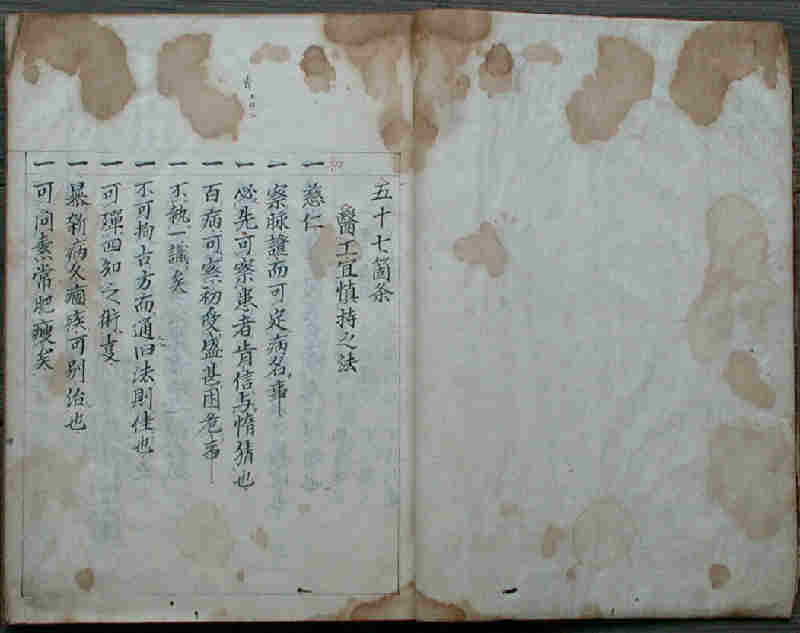 五十七箇条
醫工宜慎持之法
一 慈仁
一 察脉證而可定病名事
一 必先可察患者肯信与惰猜也
一 百病可察初受盛甚困危事
一 不執一議矣
一 不可拘古方而通旧法則佳也
一 可殫四知之術事
一 暴新病久痼疾可別治也
一 可問素常肥瘦矣